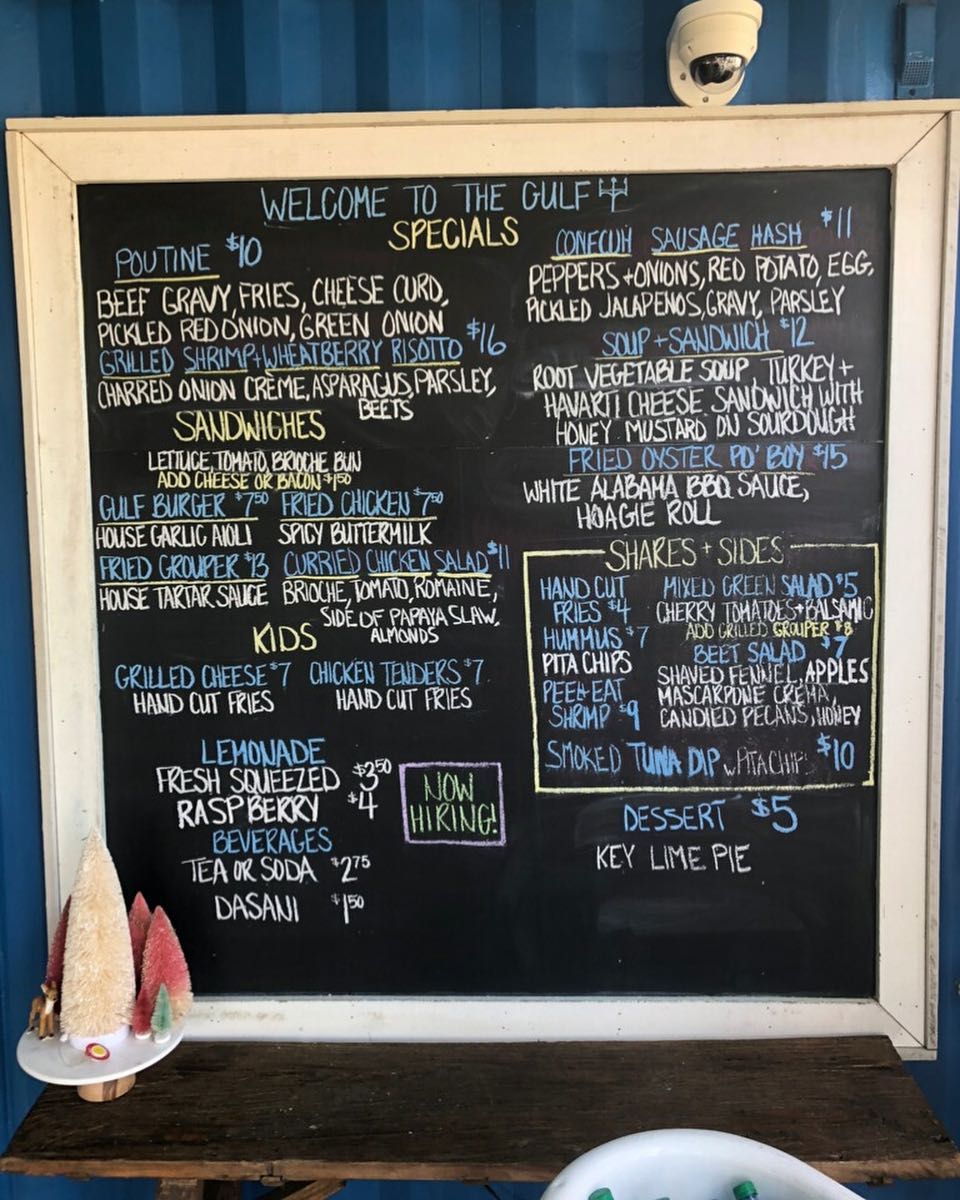 WELCOME TO THE GULF
SPECIALS
POUTINE $10
BEEF GRAVY, FRIES, CHEESE CURD,
PICKLED RED ONION, GREEN ONION
GRILLED SHRIMP + WHEATBERRY RISOTTO $16
CHARRED ONION CRÈME, ASPARAGUS, PARSLEY,
BEETS
CONECUH SAUSAGE HASH $11
PEPPERS + ONIONS, RED POTATO, EGG,
PICKLED JALAPENOS, GRAVY, PARSLEY
SOUP + SANDWICH $12
ROOT VEGETABLE SOUP, TURKEY +
HAVARTI CHEESE SANDWICH WITH
HONEY MUSTARD ON SOURDOUGH
FRIED OYSTER PO' BOY $15
WHITE ALABAMA BBQ SAUCE,
HOAGIE ROLL
SANDWICHES
LETTUCE, TOMATO, BRIOCHE BUN
ADD CHEESE OR BACON $1.50
GULF BURGER $7.50
HOUSE GARLIC AIOLI
FRIED CHICKEN $7.50
SPICY BUTTERMILK
FRIED GROUPER $13
HOUSE TARTAR SAUCE
CURRIED CHICKEN SALAD $11
BRIOCHE, TOMATO, ROMAINE,
SIDE OF PAPAYA SLAW,
ALMONDS
KIDS
GRILLED CHEESE $7
HAND CUT FRIES
CHICKEN TENDERS $7
HAND CUT FRIES
LEMONADE
FRESH SQUEEZED $3.50
RASPBERRY $4
BEVERAGES
TEA OR SODA $2.75
DASANI $1.50
NOW
HIRING!
SHARES + SIDES
HAND CUT
FRIES $4
HUMMUS $7
PITA CHIPS
PEEL + EAT
SHRIMP $9
MIXED GREEN SALAD $5
CHERRY TOMATOES + BALSAMIC
ADD GRILLED GROUPER $8
BEET SALAD $7
SHAVED FENNEL, APPLES
MASCARPONE CREMA,
CANDIED PECANS, HONEY
SMOKED TUNA DIP w/ PITA CHIPS $10
DESSERT $5
KEY LIME PIE